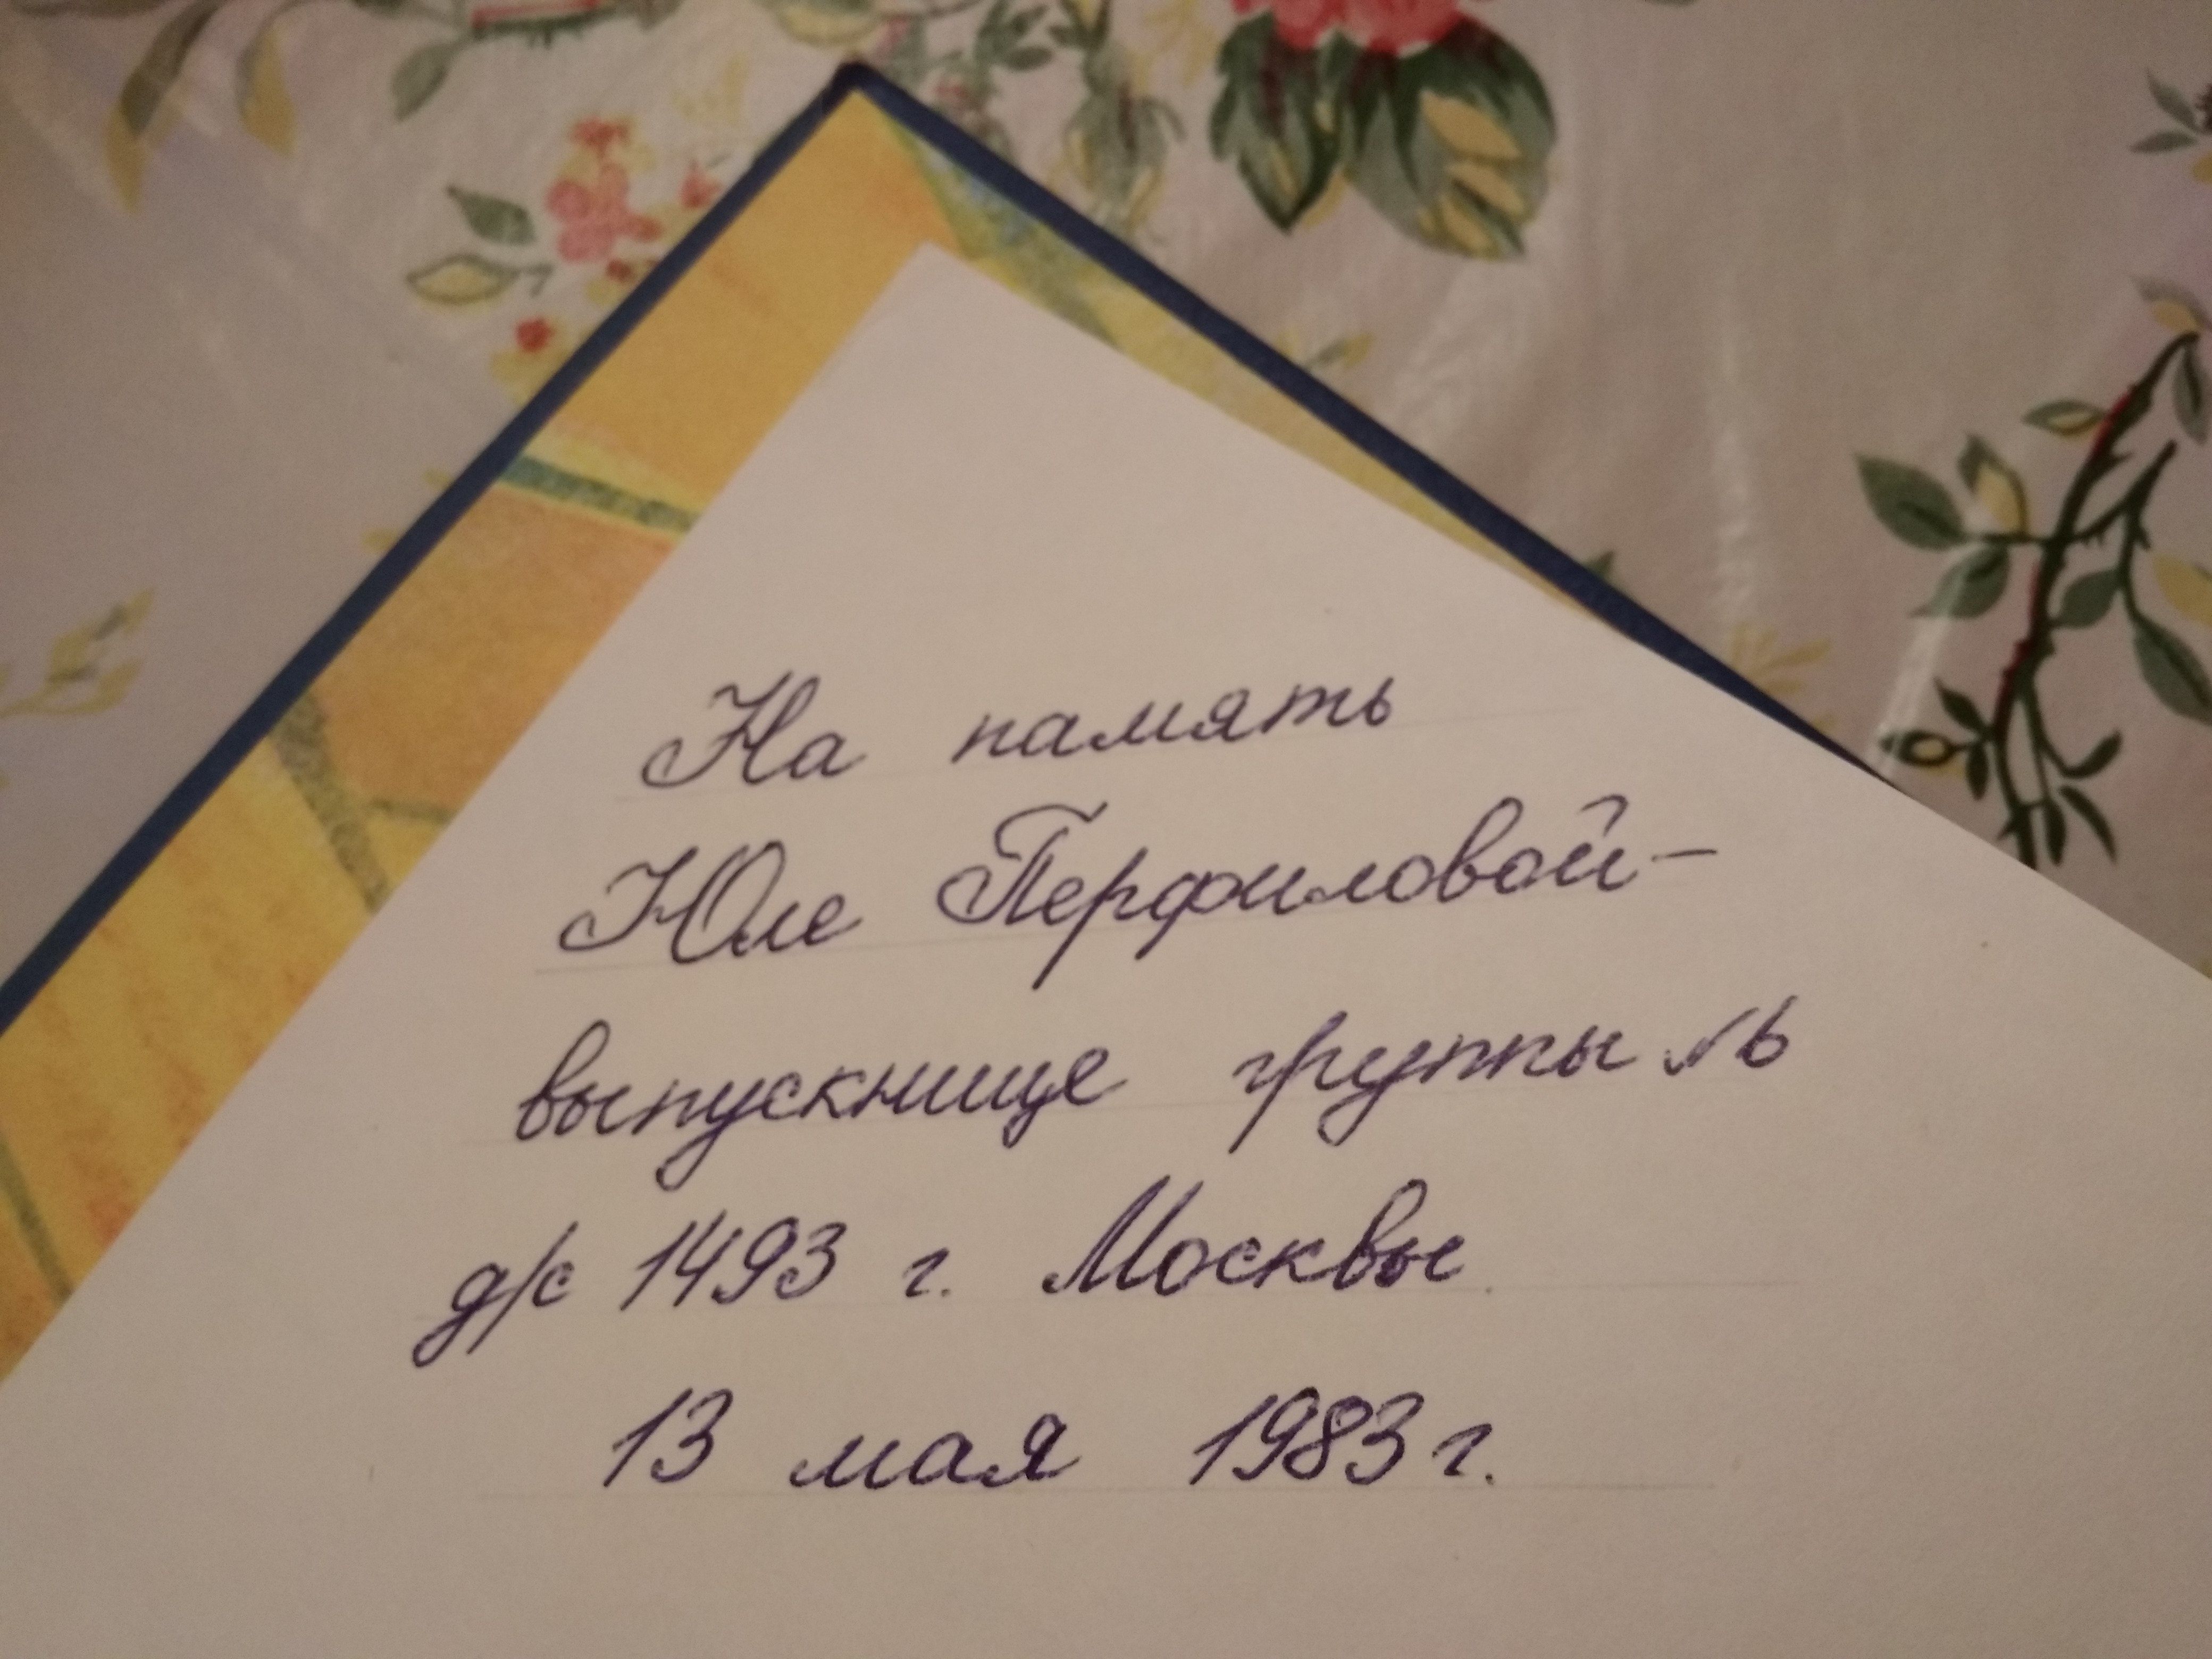 На память
Юле Перфиловой-
выпускнице группы №6
д/с 1493 г. Москвы.
13 мая 1983 г.